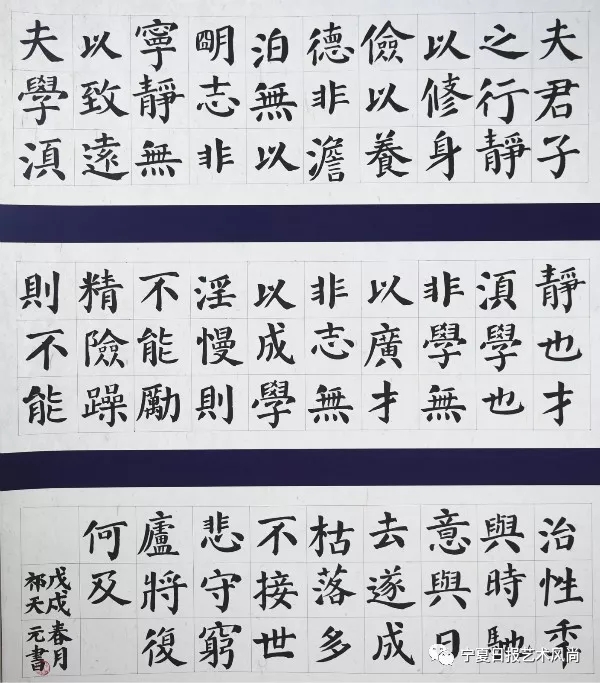 夫君子
之行靜
以修身
儉以養
德非澹
泊無以
明志非
寧靜無
以致遠
夫學湏
靜也才
湏學也
非學無
以廣才
非志無
以成學
淫慢則
不能勵
精險躁
則不能
治性年
與時馳
意與日
去遂成
枯落多
不接世
悲守窮
廬將復
何及
戊戌春月
祁天元書
宁夏日报艺术风尚